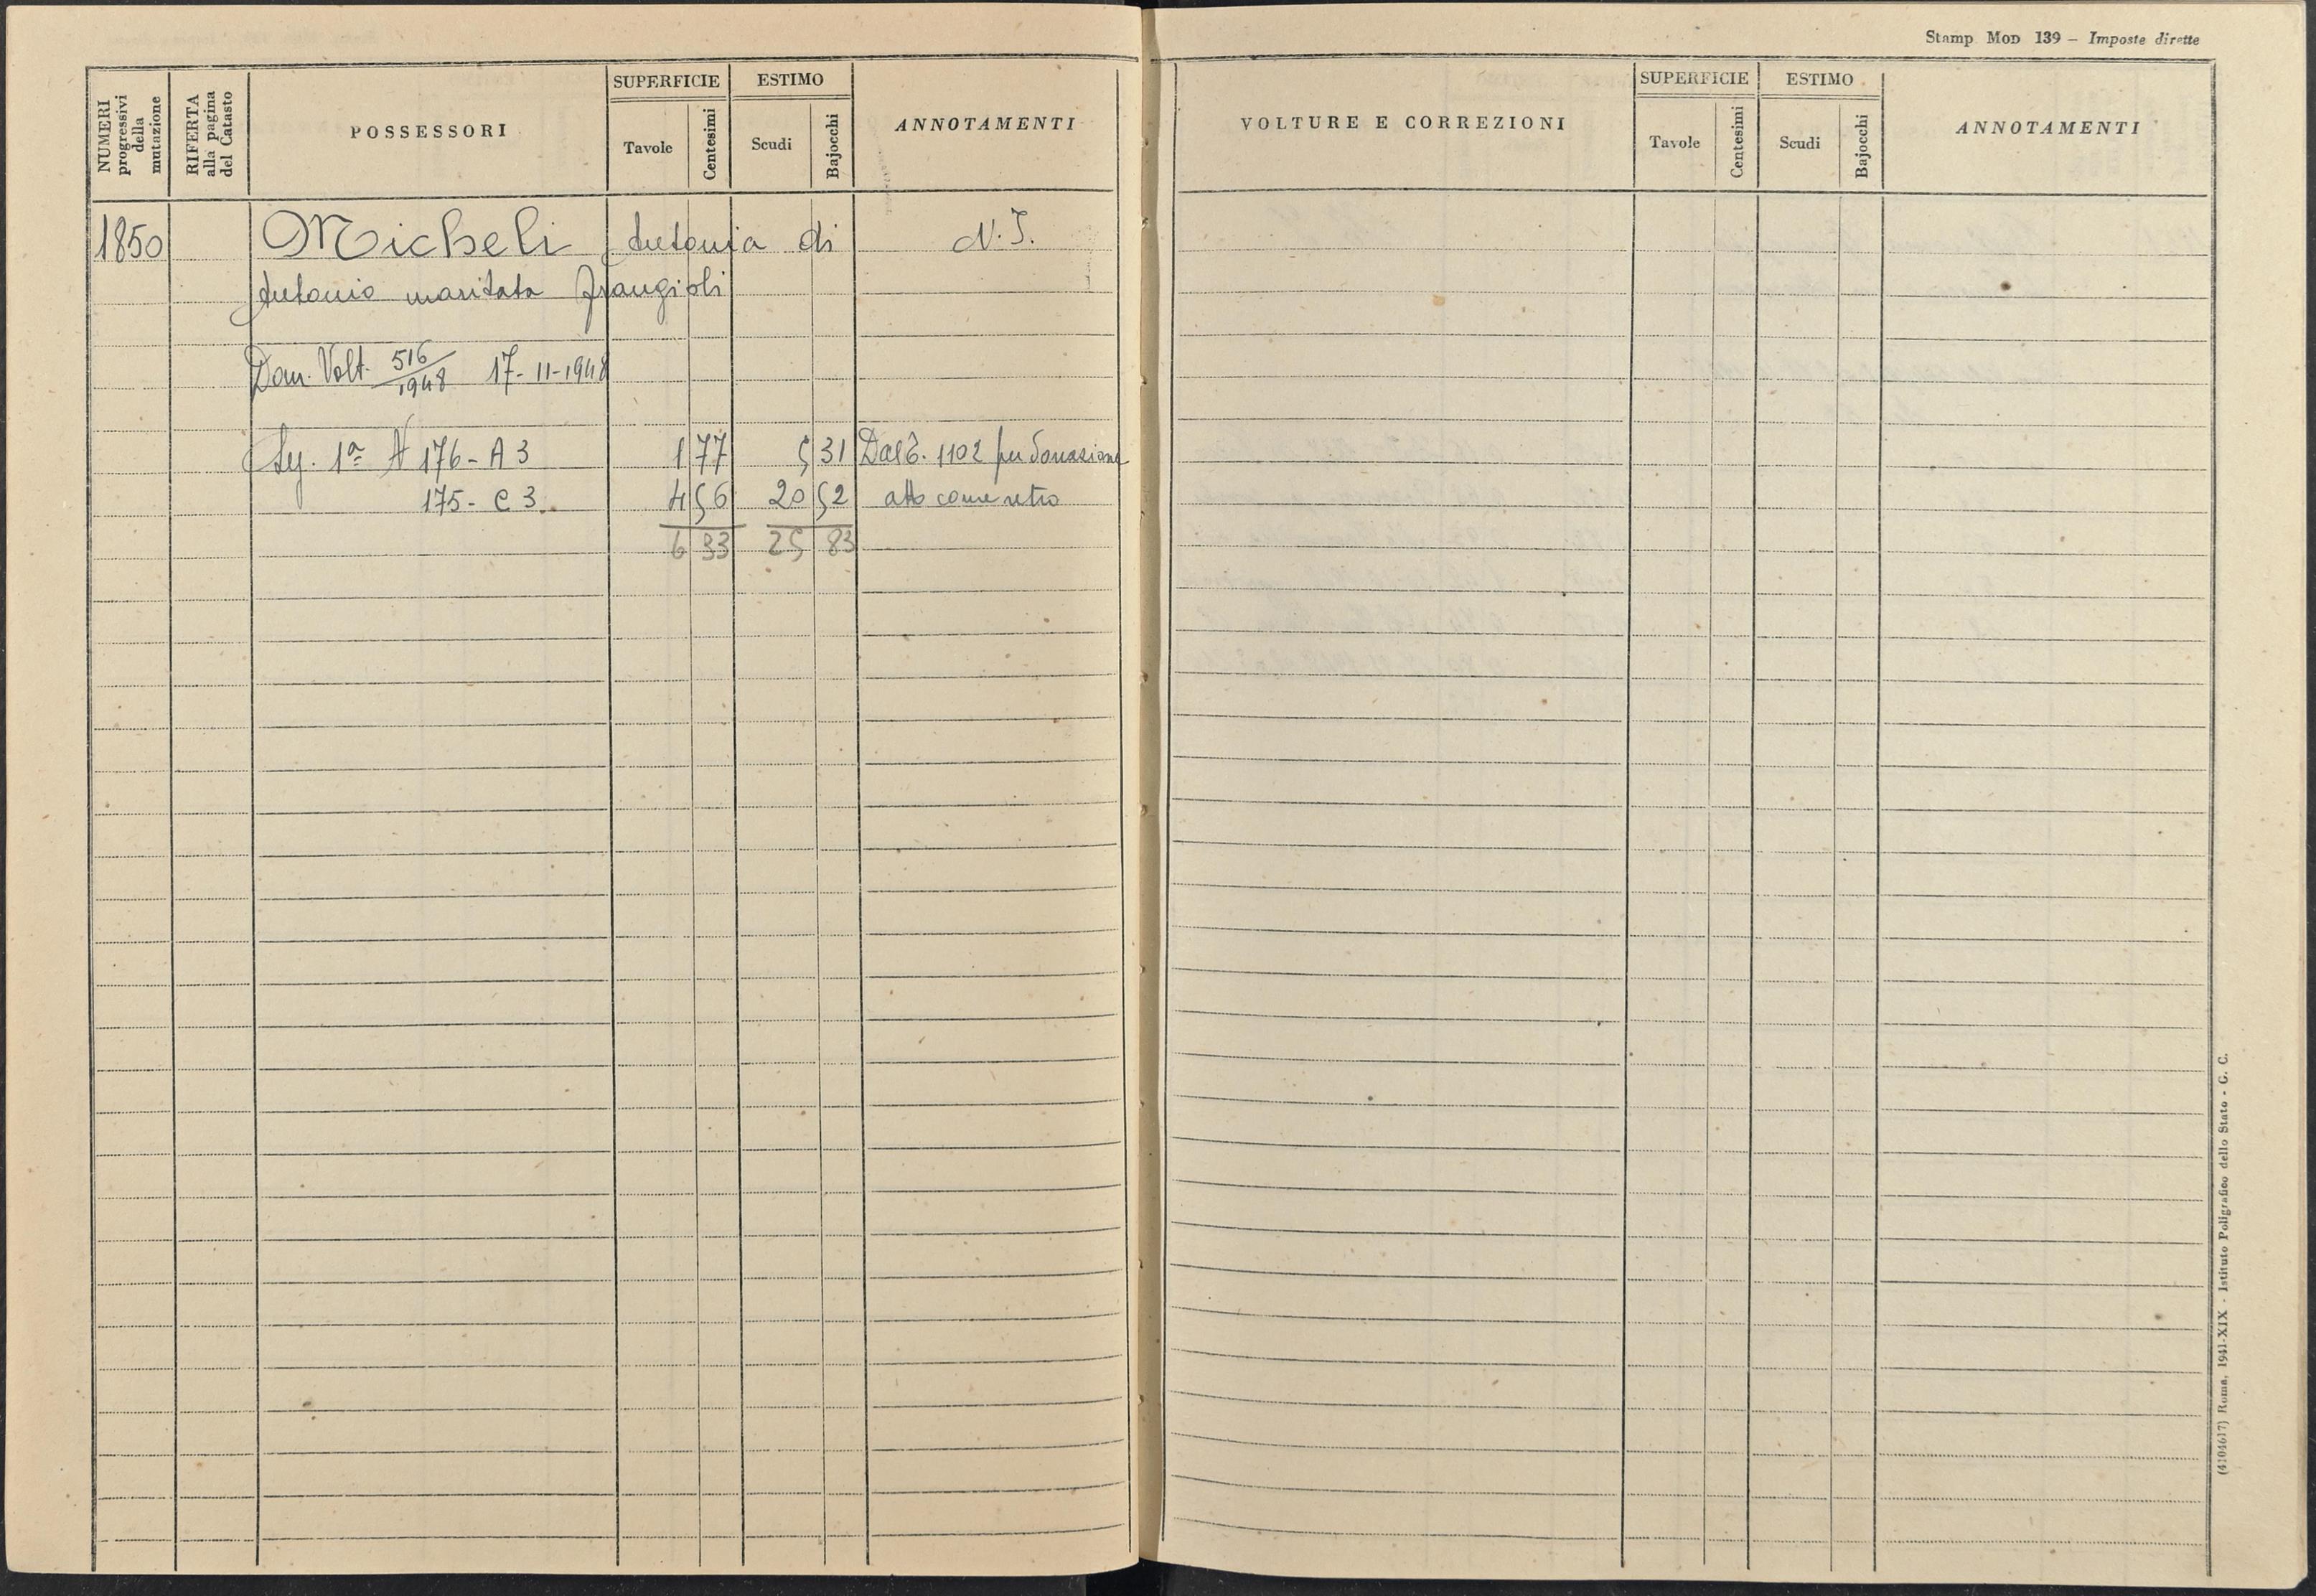 Stamp Mod 139 – Imposte dirette
NUMERI progressivi della mutazione
RIFERTA alla pagina del Catasto
POSSESSORI
SUPERFICIE
Tavole
Centesimi
ESTIMO
Scudi
Bajocchi
ANNOTAMENTI
VOLTURE E CORREZIONI
SUPERFICIE
Tavole
Centesimi
ESTIMO
Scudi
Bajocchi
ANNOTAMENTI
1850 Micheli Antonia di N. I.
Antonio maritata Frangioli
Dom. Volt. 516/1948 17-11-1948
Sez. 1ª N 176-A 3 1 77 5 31 Dal C. 1102 per donazione
175- C 3. 4 56 20 52 atto come retro
6 33 25 83
(4104617) Roma, 1941-XIX - Istituto Poligrafico dello Stato - G. C.